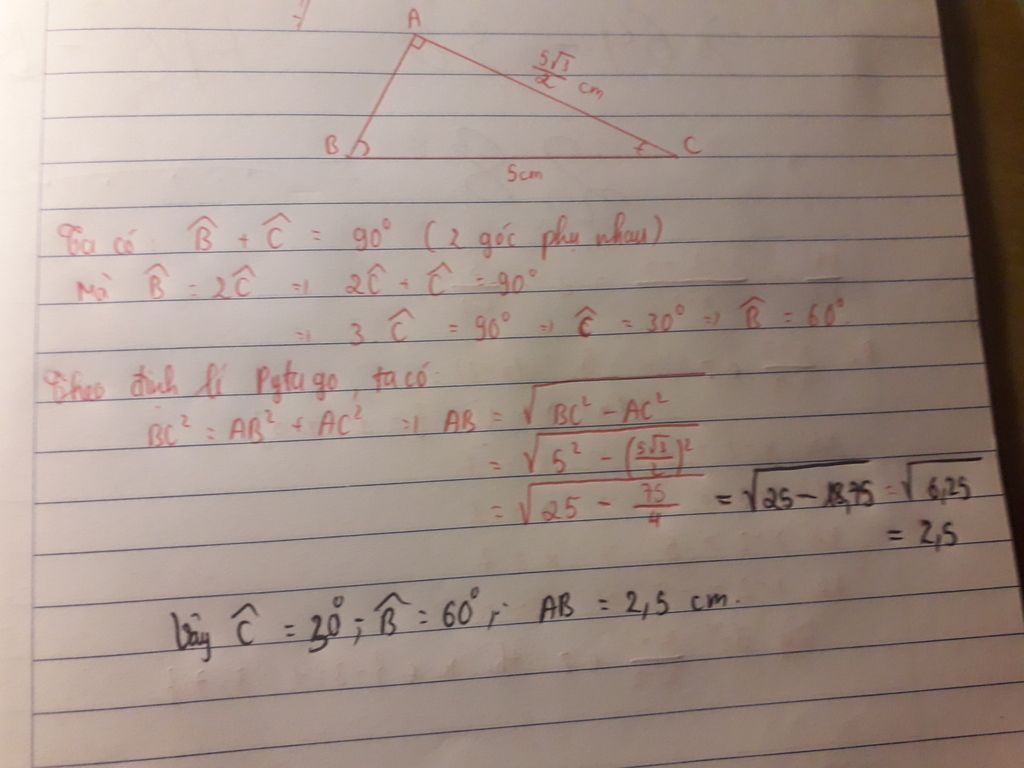 A
5√3/2 cm
B
C
5cm
Ta có: B̂ + Ĉ = 90° (2 góc phụ nhau)
Mà B̂ = 2Ĉ => 2Ĉ + Ĉ = 90°
=> 3 Ĉ = 90° => Ĉ = 30° => B̂ = 60°
Theo định lí Pytago, ta có:
BC² = AB² + AC² => AB = √(BC² - AC²)
= √(5² - (5√3/2)²)
= √(25 - 75/4) = √(25 - 18,75) = √6,25
= 2,5
Vậy Ĉ = 30°; B̂ = 60°; AB = 2,5 cm.